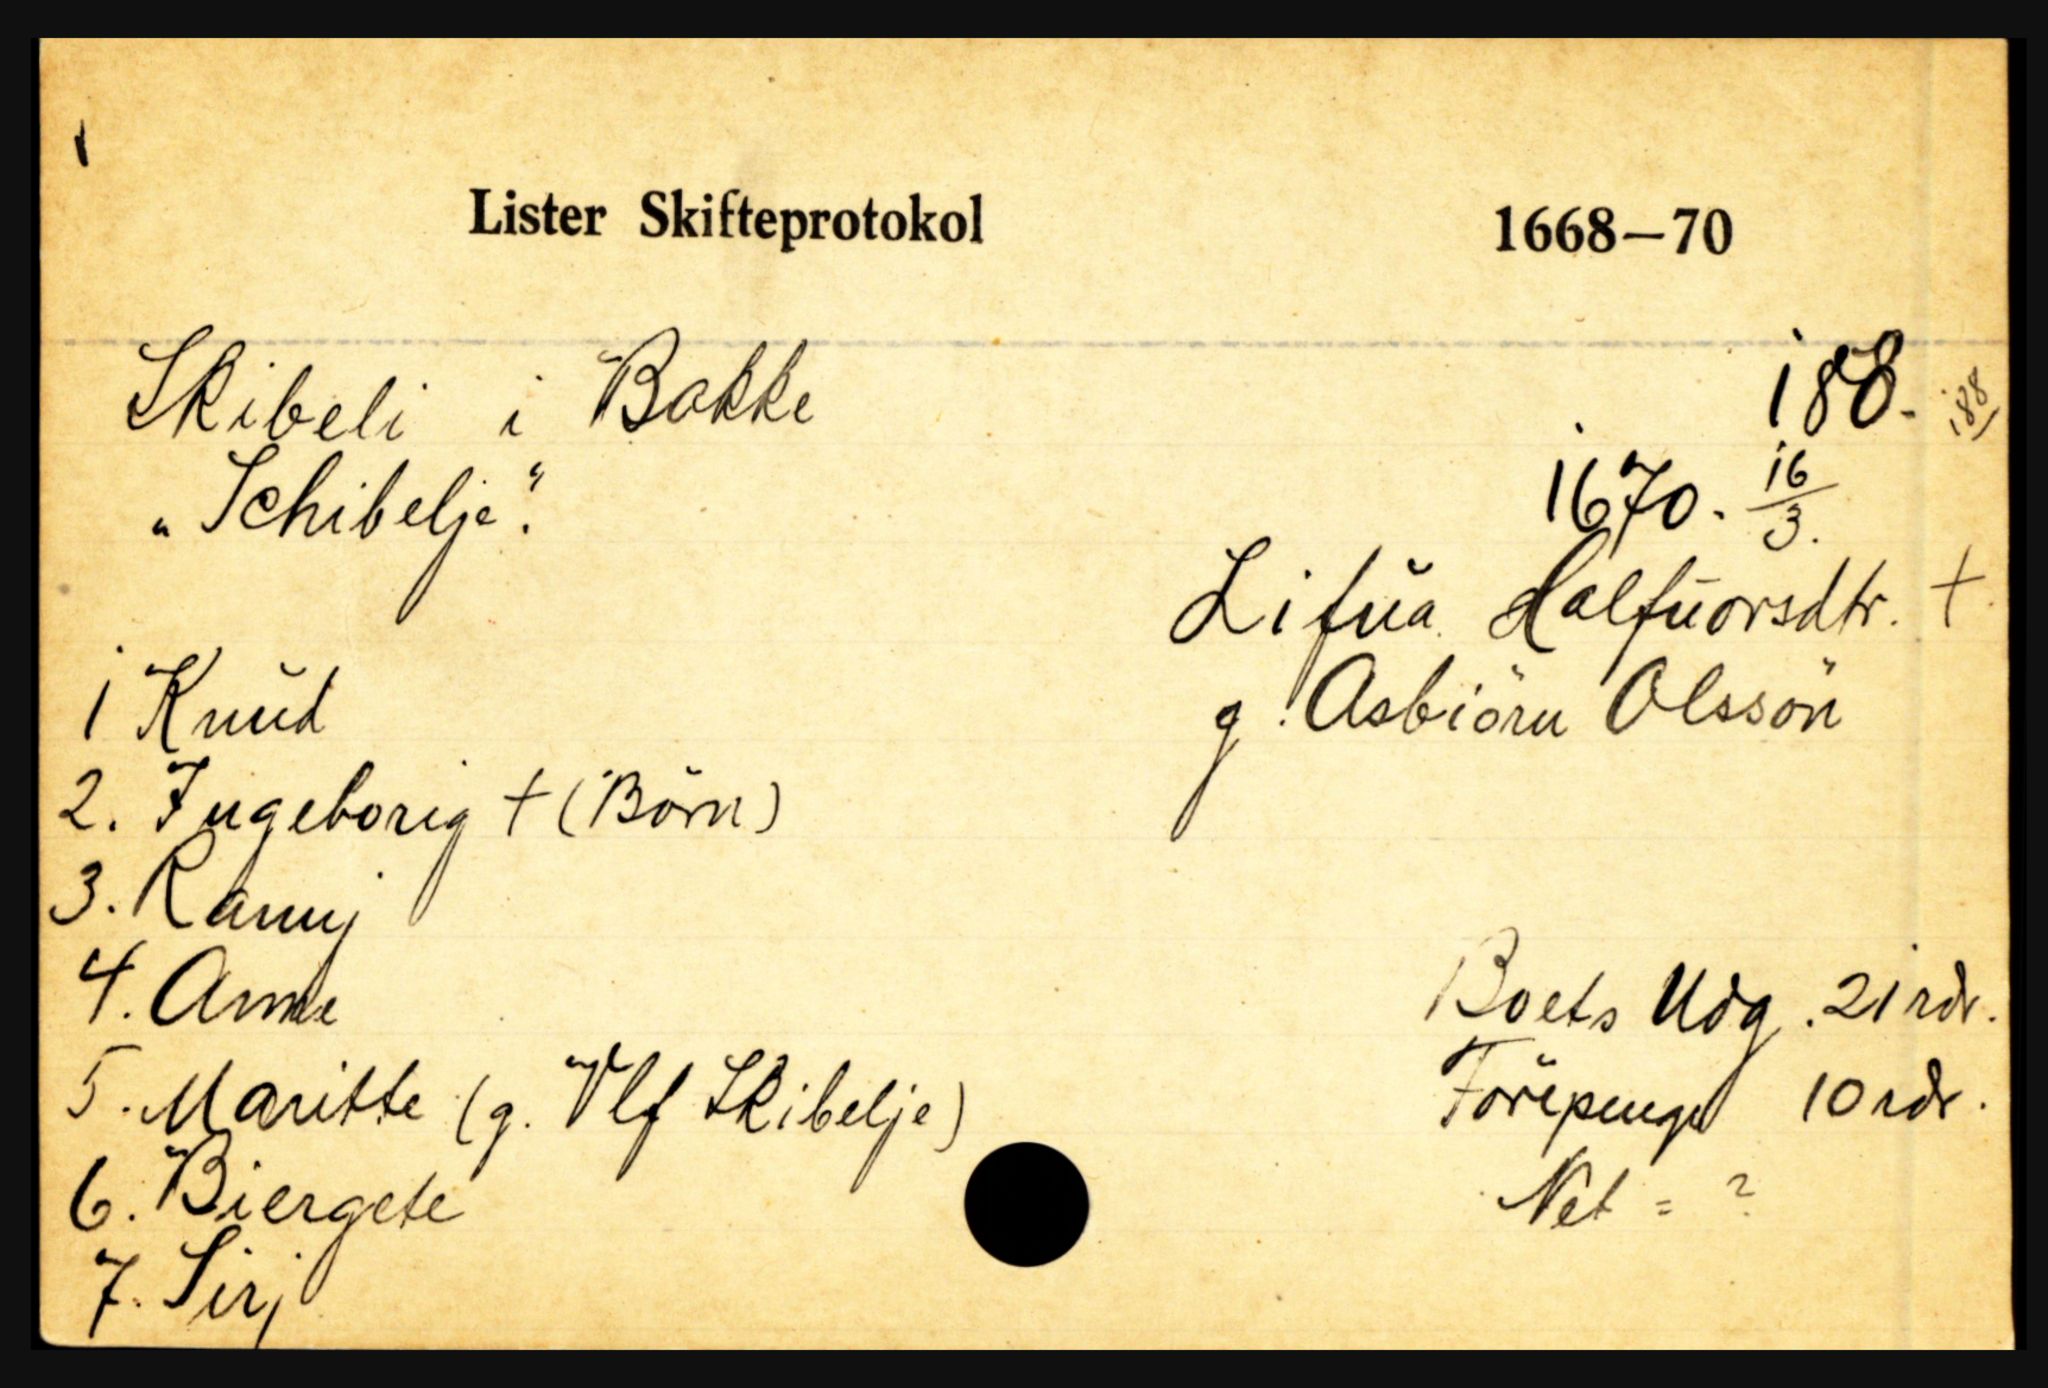 Lister Skifteprotokol 1668—70
Skibeli i Bakke 188. 188
„Schibelje". 1670. 16/3.
Lifŭa Halfŭorsdtr. †
1 Knŭd g. Asbiörn Olssön
2. Ingeborig † (Börn)
3. Rannj
4. Anne Boets Udg. 21 rdr.
5. Maritte (g. Vlf Skibelje) Förepenge 10 rdr.
6. Biergete Net = ?
7. Sirj